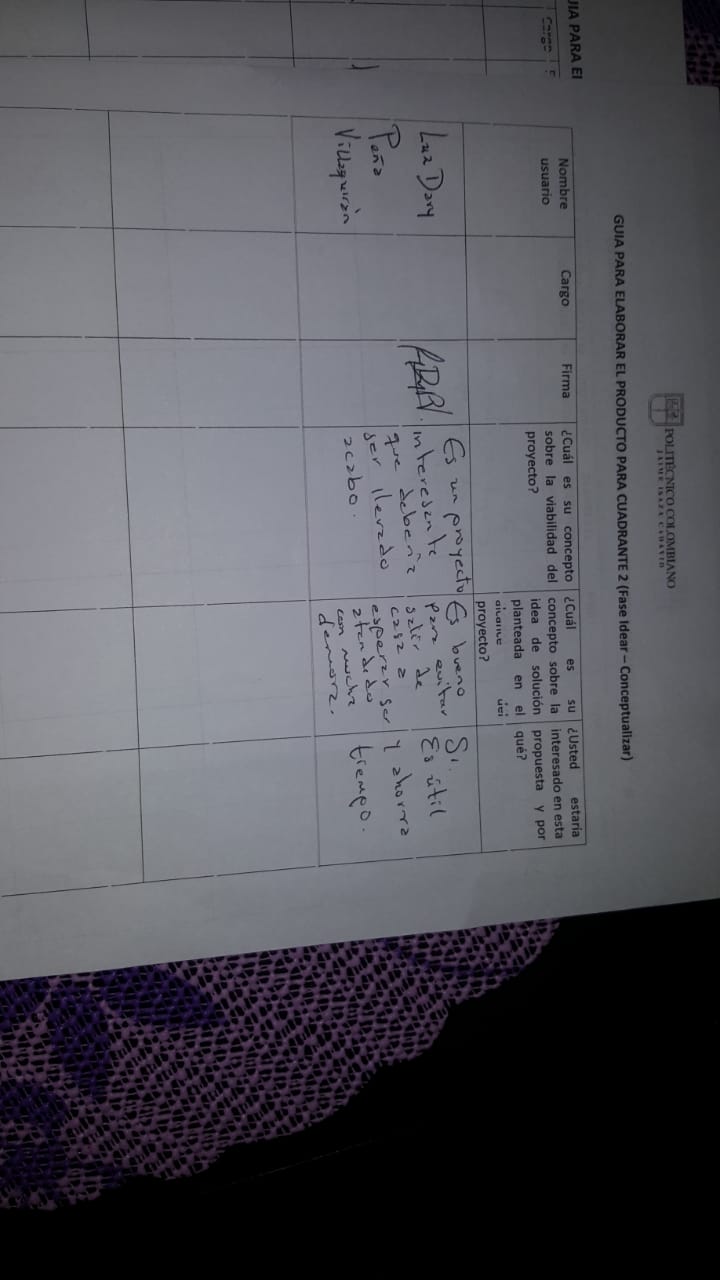 POLITÉCNICO COLOMBIANO
JAIME ISAZA CADAVID
GUIA PARA ELABORAR EL PRODUCTO PARA CUADRANTE 2 (Fase Idear – Conceptualizar)
Nombre
usuario
Cargo
Firma
¿Cuál es su concepto
sobre la viabilidad del
proyecto?
¿Cuál es su
concepto sobre la
idea de solución
planteada en el
alcance del
proyecto?
¿Usted estaría
interesado en esta
propuesta y por
qué?
Luz Dary
Peña
Villaquirán
Es un proyecto
interesante
que debería
ser llevado
acabo.
Es bueno
para evitar
salir de
casa a
esperar ser
atendido
con mucha
demora.
Sí.
Es útil
y ahorra
tiempo.
UIA PARA El
Cargo